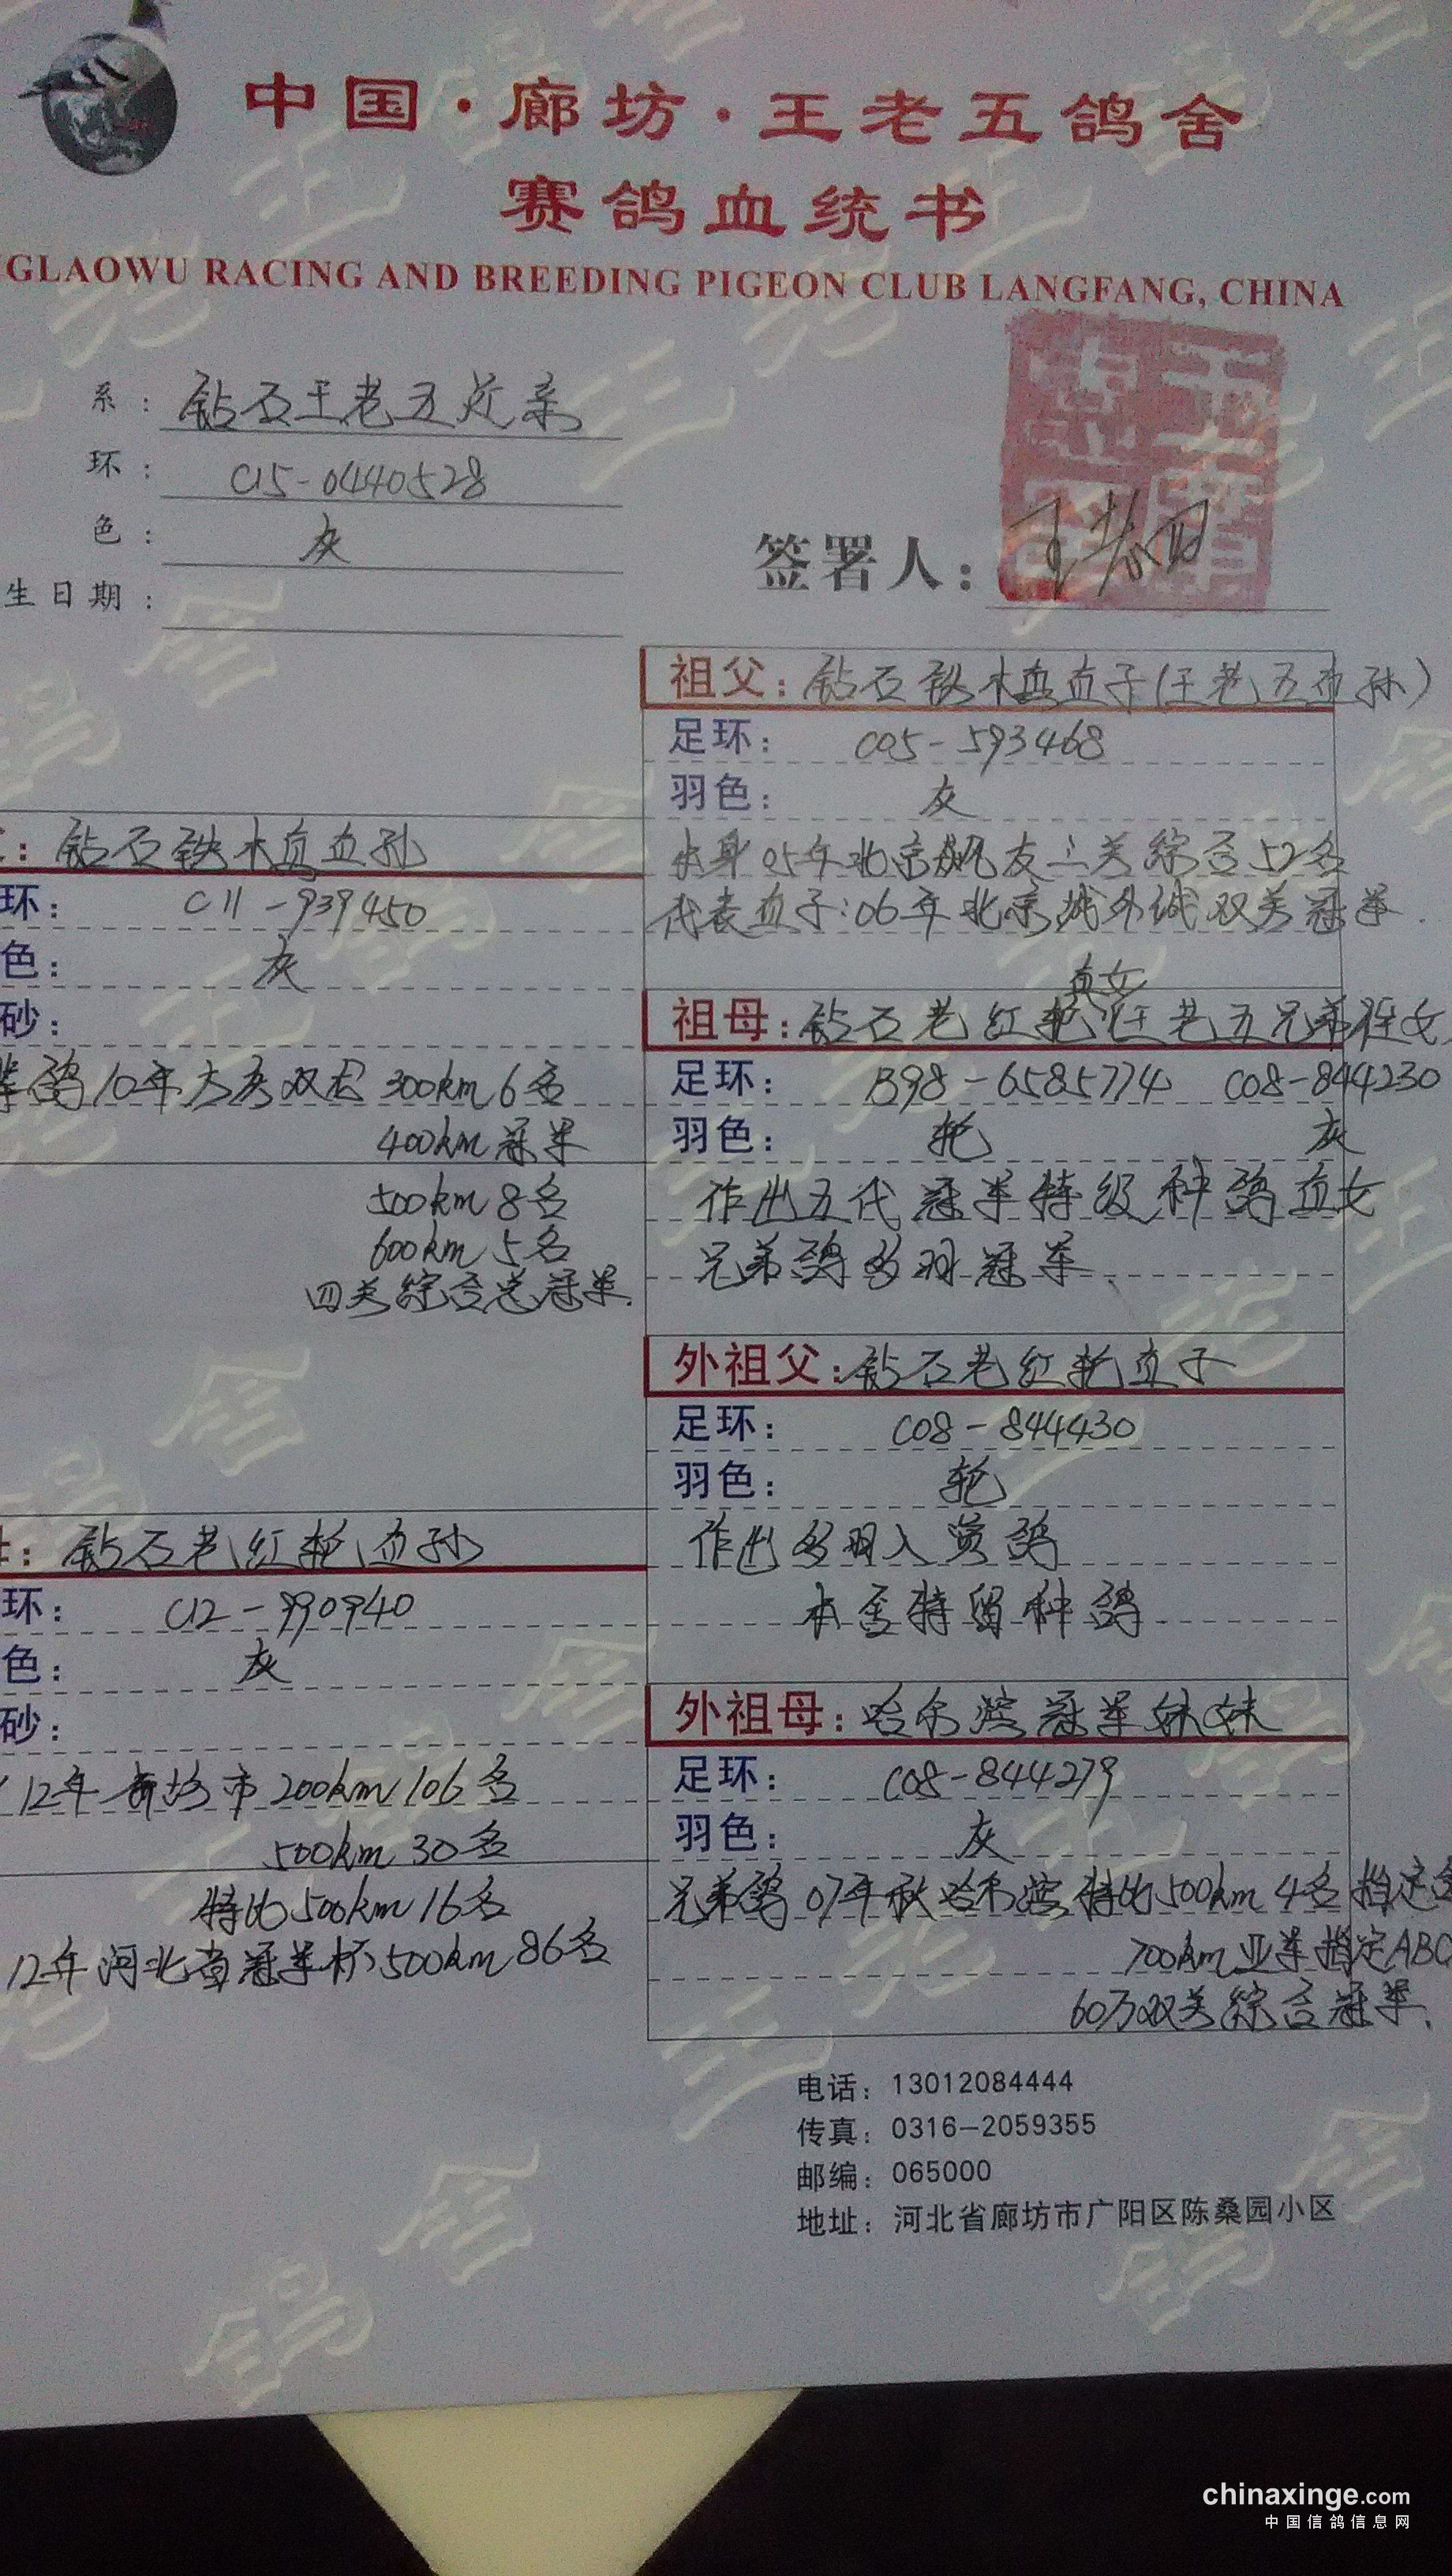 中国·廊坊·王老五鸽舍
赛鸽血统书
GLAOWU RACING AND BREEDING PIGEON CLUB LANGFANG, CHINA
系: 钻石王老五近亲
环: C15-0440528
色: 灰
生日期:
签署人:
祖父: 钻石铁木真直子(王老五直孙)
足环: C05-593468
羽色: 灰
本身05年北京飒友三关综合52名
代表直子:06年北京城外诚双关冠军.
: 钻石铁木真血孙
环: C11-939450
色: 灰
砂:
鸽10年大庆双龙300km 6名
400km冠军
500km 8名
600km 5名
四关综合总冠军.
直女
祖母: 钻石老红轮 王老五兄弟侄女
足环: B98-6585774 C08-844230
羽色: 轮 灰
作出五代冠军特级种鸽直女
兄弟鸽多羽冠军.
外祖父: 钻石老红轮直子
足环: C08-844430
羽色: 轮
作出多羽入赏鸽
本舍特留种鸽
: 钻石老红轮血孙
环: C12-990940
色: 灰
砂:
12年廊坊市200km 106名
500km 30名
特比500km 16名
12年河北省冠军杯500km 86名
外祖母: 哈尔滨冠军妹妹
足环: C08-844279
羽色: 灰
兄弟鸽07年秋哈尔滨特比500km 4名指定
700km亚军指定ABC
60万双关综合冠军.
电话: 13012084444
传真: 0316-2059355
邮编: 065000
地址: 河北省廊坊市广阳区陈桑园小区
chinaxinge.com
中国信鸽信息网